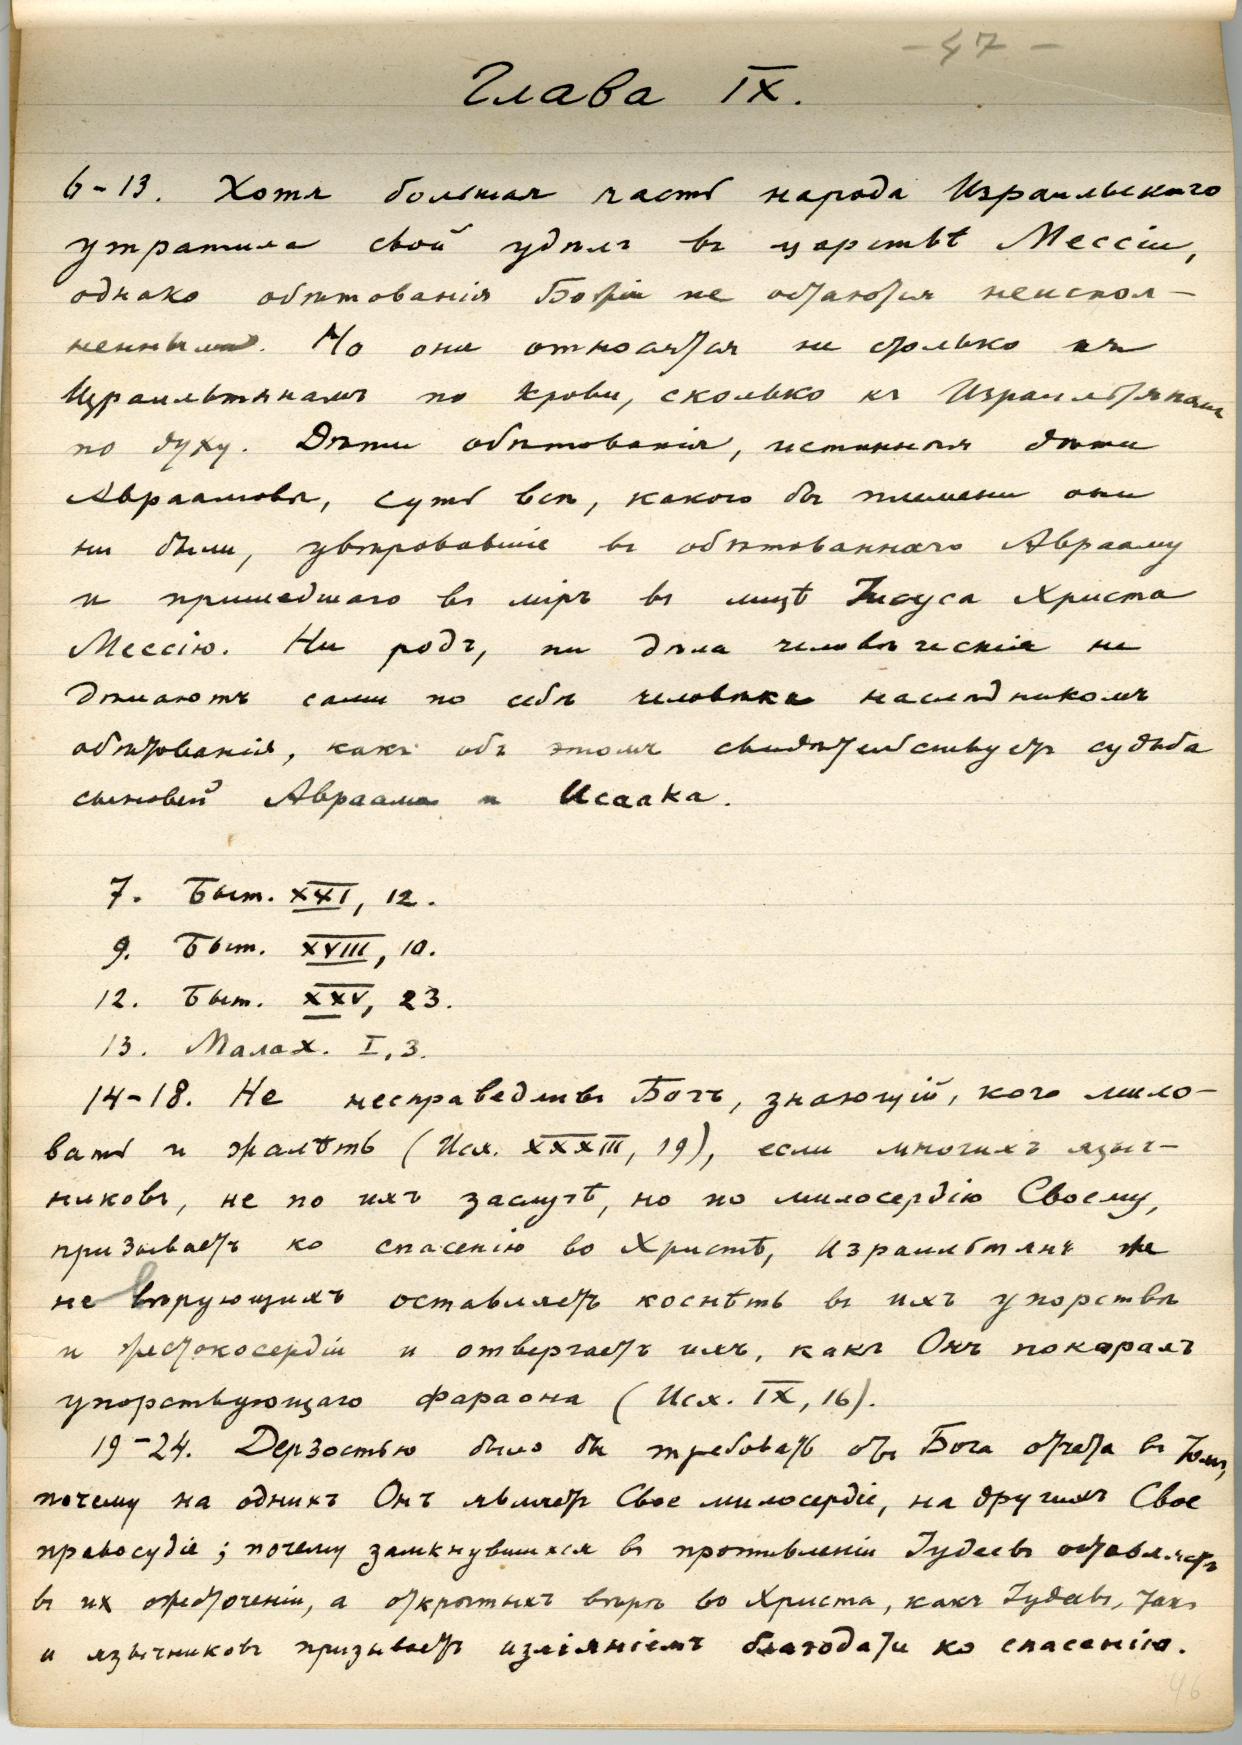 - 47 -
Глава IX.
6-13. Хотя большая часть народа Израильскаго
утратила свой удѣлъ въ царствѣ Мессіи,
однако обѣтованія Божіи не остаются неиспол-
ненными. Но они относятся не столько къ
Израильтянамъ по крови, сколько къ Израильтянамъ
по духу. Дѣти обѣтованія, истинныя дѣти
Авраамовы, суть всѣ, какого бы племени они
ни были, увѣровавшіе въ обѣтованнаго Аврааму
и пришедшаго въ міръ въ лицѣ Іисуса Христа
Мессію. Ни родъ, ни дѣла человѣческія не
дѣлаютъ сами по себѣ человѣка наслѣдникомъ
обѣтованія, какъ объ этомъ свидѣтельствуетъ судьба
сыновей Авраама и Исаака.
7. Быт. XXI, 12.
9. Быт. XVIII, 10.
12. Быт. XXV, 23.
13. Малах. I, 3.
14-18. Не несправедливъ Богъ, знающій, кого мило-
вать и жалѣть (Исх. XXXIII, 19), если многихъ языч-
никовъ, не по ихъ заслугѣ, но по милосердію Своему,
призываетъ ко спасенію во Христѣ, Израильтянъ же
не вѣрующихъ оставляетъ коснѣть въ ихъ упорствѣ
и жестокосердіи и отвергаетъ ихъ, какъ Онъ покаралъ
упорствующаго фараона (Исх. IX, 16).
19-24. Дерзостью было бы требовать отъ Бога отчета въ томъ,
почему на однихъ Онъ являетъ Свое милосердіе, на другихъ Свое
правосудіе; почему замкнувшихся въ противленіи Іудеевъ оставляетъ
въ их ожесточеніи, а открытыхъ вѣрѣ во Христа, какъ Іудеевъ, такъ
и язычниковъ призываетъ изліяніемъ благодати ко спасенію.
46